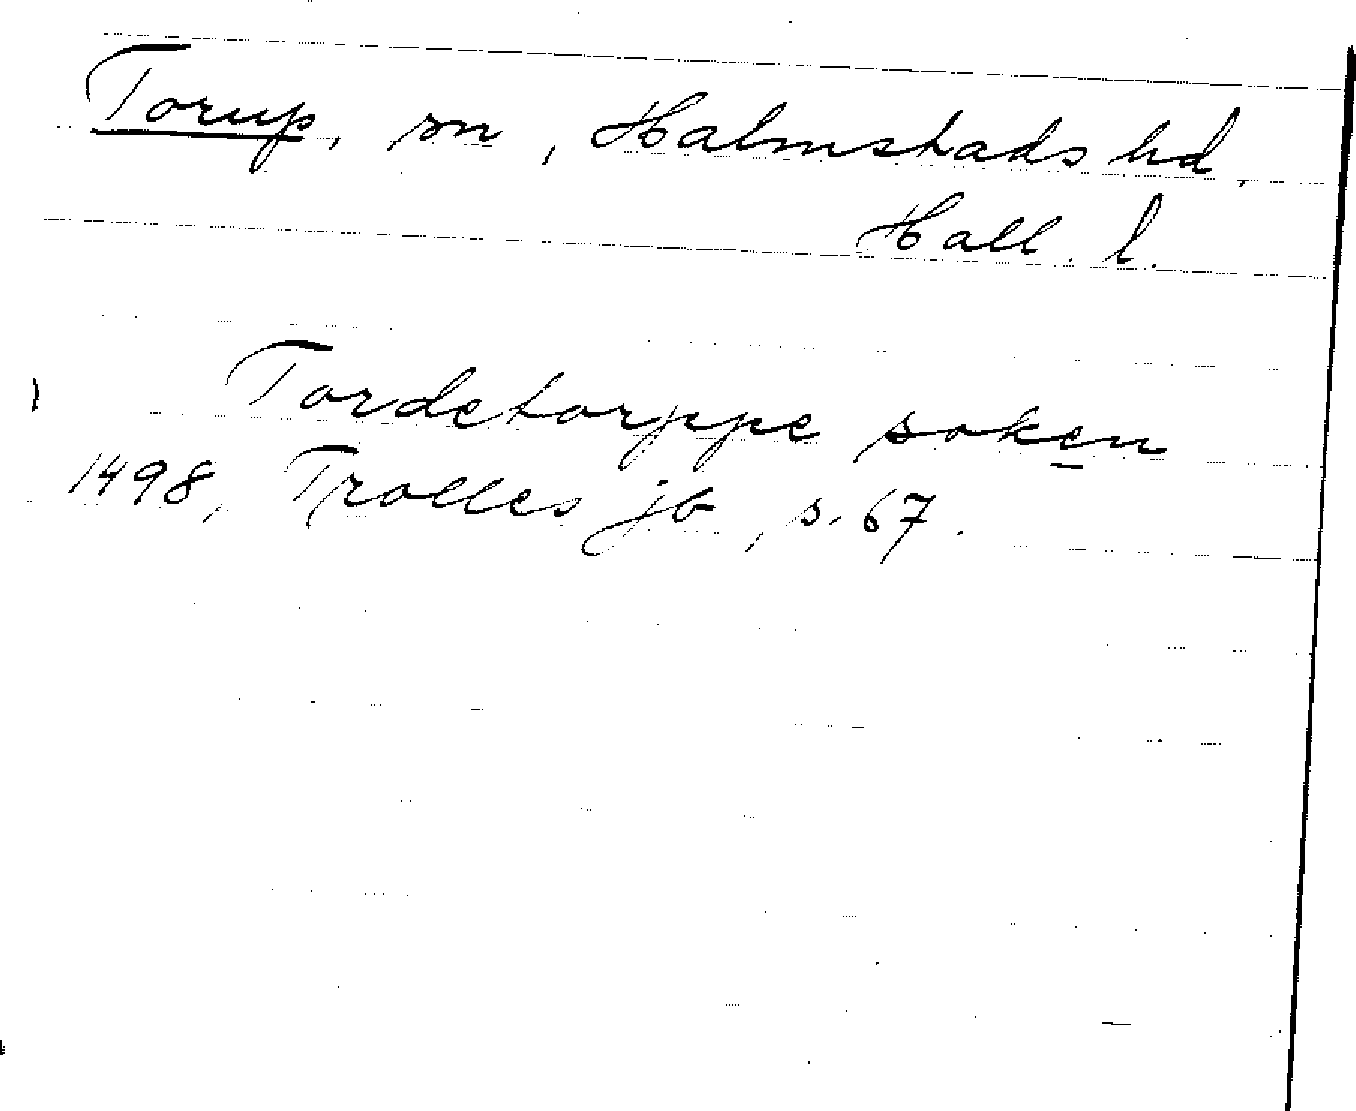 Torup, sn, Halmstads hd,
Hall. l.
Tordetorppe soken
1498, Trolles jb, s. 67.